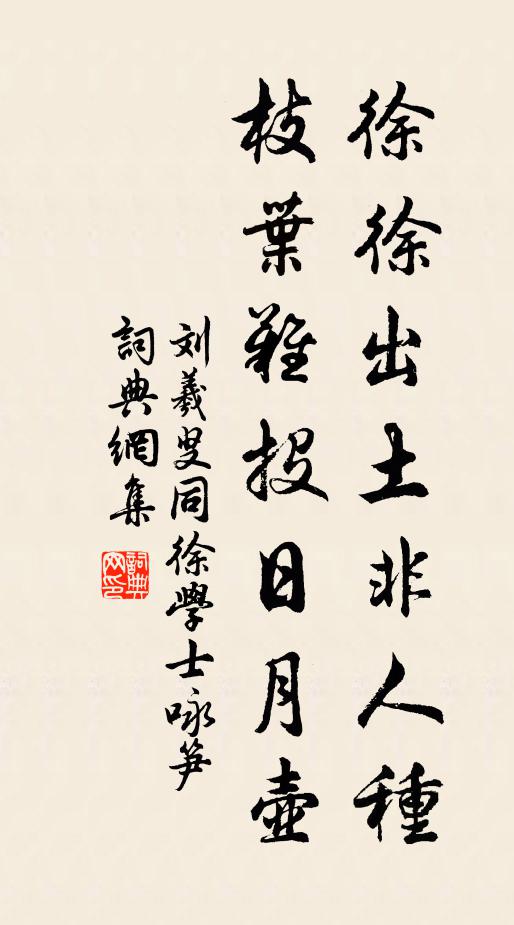 徐徐出土非人種
枝葉難投日月壺
刘羲叟同徐學士咏笋
詞典網集
詞典網印